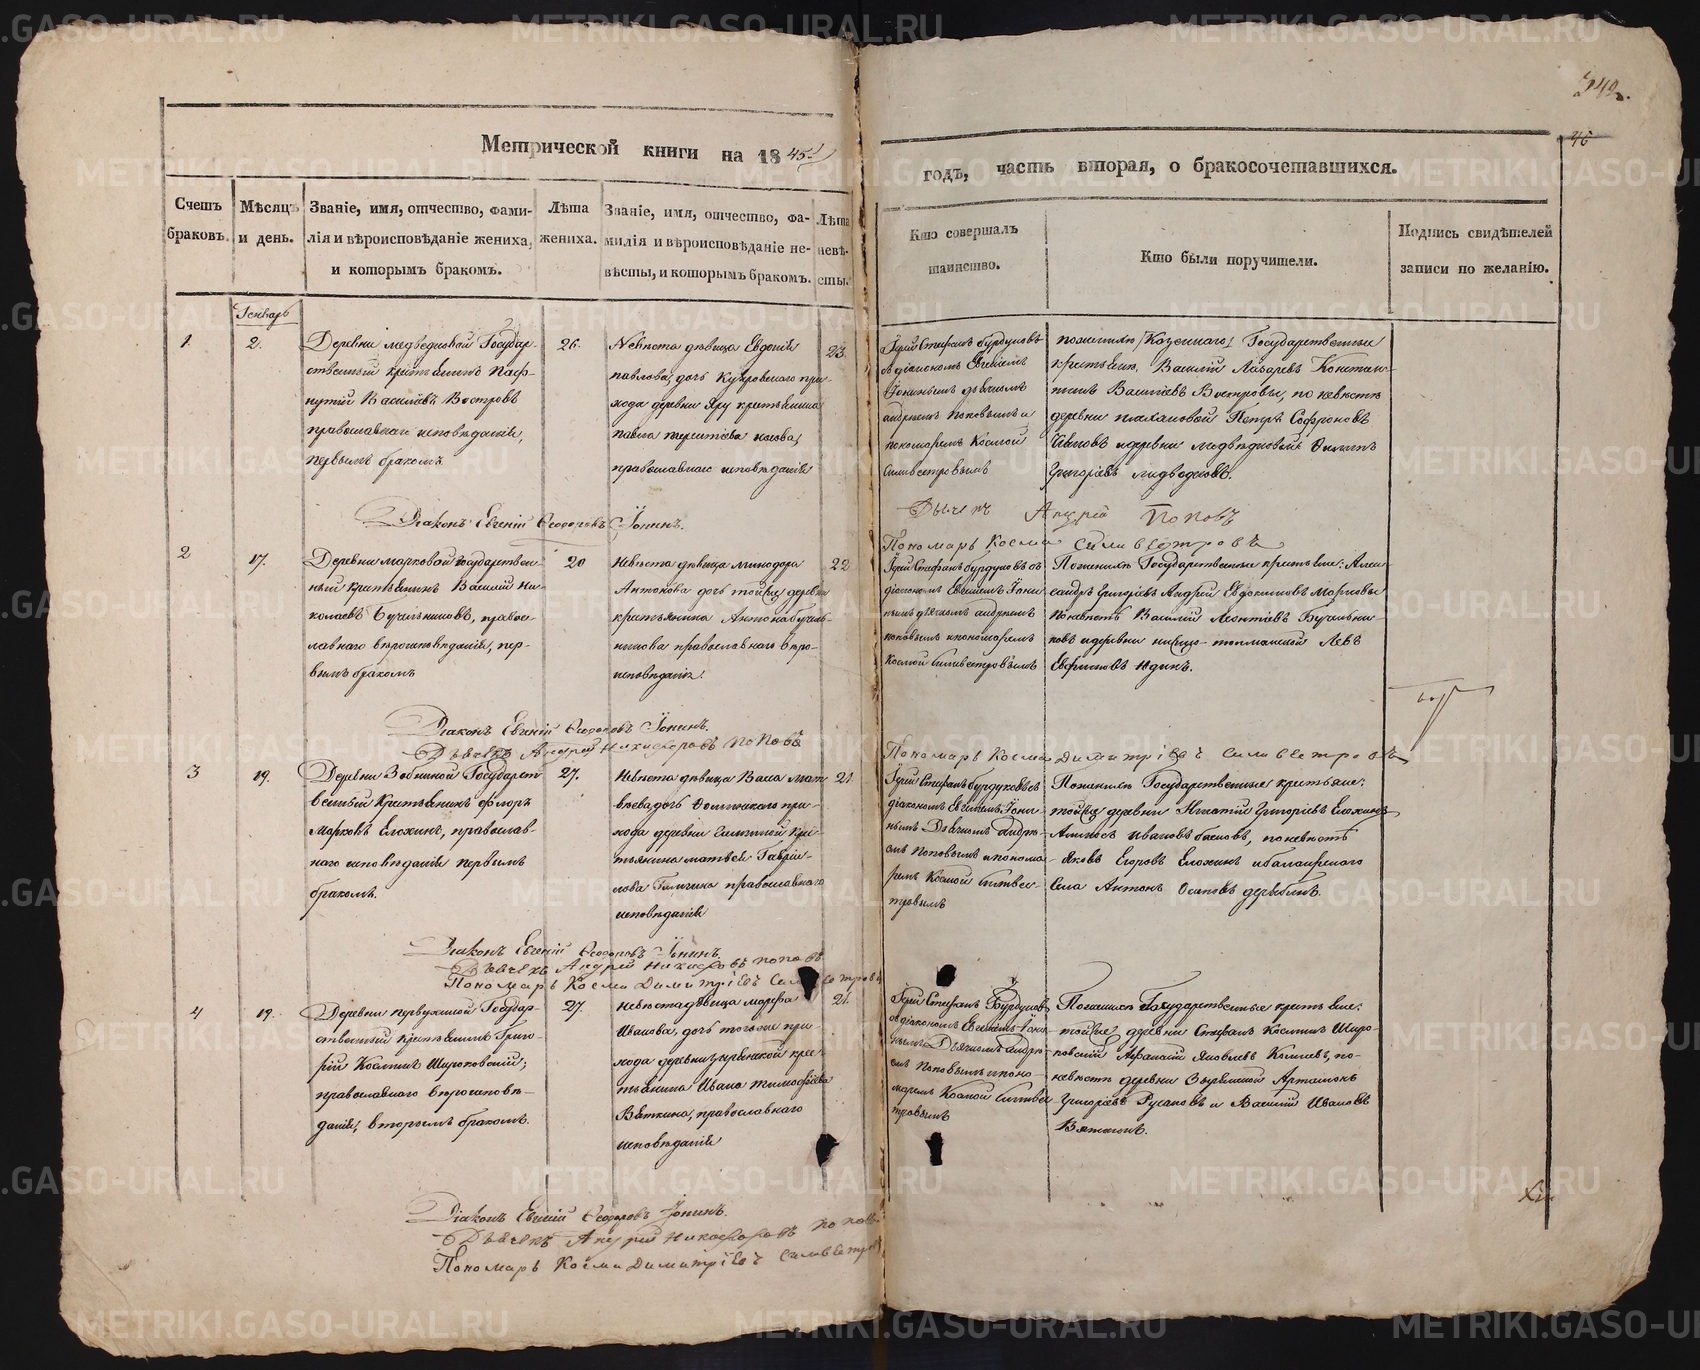 242.
46
Метрической книги на 1845й
годъ, часть вторая, о бракосочетавшихся.
Счетъ браковъ.
Мѣсяцъ и день.
Званіе, имя, отчество, фами-
лія и вѣроисповѣданіе жениха,
и которымъ бракомъ.
Лѣта
жениха.
Званіе, имя, отчество, фа-
милія и вѣроисповѣданіе не-
вѣсты, и которымъ бракомъ.
Лѣта
невѣ-
сты.
Кто совершалъ
таинство.
Кто были поручители.
Подпись свидѣтелей
записи по желанію.
Генварь
1
2.
Деревни Медведковой Государ-
ственный крестьянинъ Паф-
нутий Василіевъ Востровъ
православнаго исповѣданія,
первымъ бракомъ.
26.
Невѣста дѣвица Евдокія
Павлова, дочь
хода деревни Яру крестьянина
Павла
православнаго исповѣданія
23.
Іерей Стефанъ Бурдуковъ
съ діакономъ Евгеніемъ
Іонинымъ дьячкомъ
андреемъ Поповымъ и
пономаремъ Космой
Силивестровымъ
по женихѣ Государственные
крестьяне, Василій Лазаревъ Констан-
тинъ Василіевъ Востровы, по невѣстѣ
деревни Петръ Софроновъ
и деревни медвѣдковой Филипъ
Григоріевъ медведковъ.
Діаконъ Евгеній Ѳеодоровъ Іонинъ.
Дьячекъ Андрей Поповъ
Пономарь Косма Силивестровъ
2
17.
Деревни Марковой Государствен-
ный крестьянинъ Василій Ни-
колаевъ Бучельниковъ, правос-
лавнаго вѣроисповѣданія, пер-
вымъ бракомъ
20
Невѣста дѣвица Минодора
Антонова дочь тойже деревни
крестьянина Антона Бучель-
никова православнаго вѣро-
исповѣданія.
22
Іерей Стефанъ Бурдуковъ съ
діакономъ Евгеніемъ Іони-
нымъ дьячкомъ андреемъ
поповымъ и пономаремъ
Космой Силивестровымъ
По женихѣ Государственные крестьяне: Алек-
сандръ Григоріевъ Андрей Евдокимовъ Марковы
по невѣстѣ Василій Леонтіевъ Бучельни-
ковъ и деревни Левъ
Юдинъ.
Діаконъ Евгеній Ѳеодоровъ Іонинъ.
Дьячекъ Андрей Никифоровъ Поповъ
Пономарь Косма Димитріевъ Силивестровъ
3
19.
Деревни Зобниной Государст-
венный Крестьянинъ Флоръ
Марковъ Елохинъ, православ-
наго исповѣданія первымъ
бракомъ.
27.
Невѣста дѣвица Васа Мат-
вѣева дочь
хода деревни кре-
стьянина Матвея Гаврии-
лова православнаго
исповѣданія
21.
Іерей Стефанъ Бурдуковъ съ
діакономъ Евгеніемъ Іони-
нымъ Дьячкомъ Андре-
емъ Поповымъ и понома-
ремъ Космой Силивес-
тровымъ
По женихѣ Государственные крестьяне:
тойже деревни Игнатій Григоріевъ Елохинъ
Ивановъ по невѣстѣ
Яковъ Егоровъ Елохинъ
Села Антонъ Осиповъ
Діаконъ Евгеній Ѳеодоровъ Іонинъ.
Дьячекъ Андрей Никифоровъ Поповъ
Пономарь Косма Димитріевъ Силивестровъ
4
19.
Деревни Первушиной Государ-
ственный крестьянинъ Григо-
рій Косминъ Широковскій;
православнаго вѣроисповѣ-
данія, вторымъ бракомъ.
27.
Невѣста дѣвица Марфа
Иванова, дочь тогоже при-
хода деревни Зырянской кре-
стьянина Ивана Тимофѣева
Вяткина, православнаго
исповѣданія
21.
Іерей Стефанъ Бурдуковъ
съ діакономъ Евгеніемъ Іони-
нымъ Дьячкомъ Андре-
емъ Поповымъ и поно-
маремъ Космой Силивес
тровымъ
По женихѣ Государственные крестьяне:
тойже деревни Стефанъ Косминъ Широ-
ковскій Афанасій Яковлевъ по-
невѣстѣ деревни Зырянской Артамонъ
Григоріевъ Русаковъ и Василій Ивановъ
Вяткинъ.
Діаконъ Евгеній Ѳеодоровъ Іонинъ.
Дьячекъ Андрей Никифоровъ Поповъ
Пономарь Косма Димитріевъ Силивестровъ
METRIKI.GASO-URAL.RU